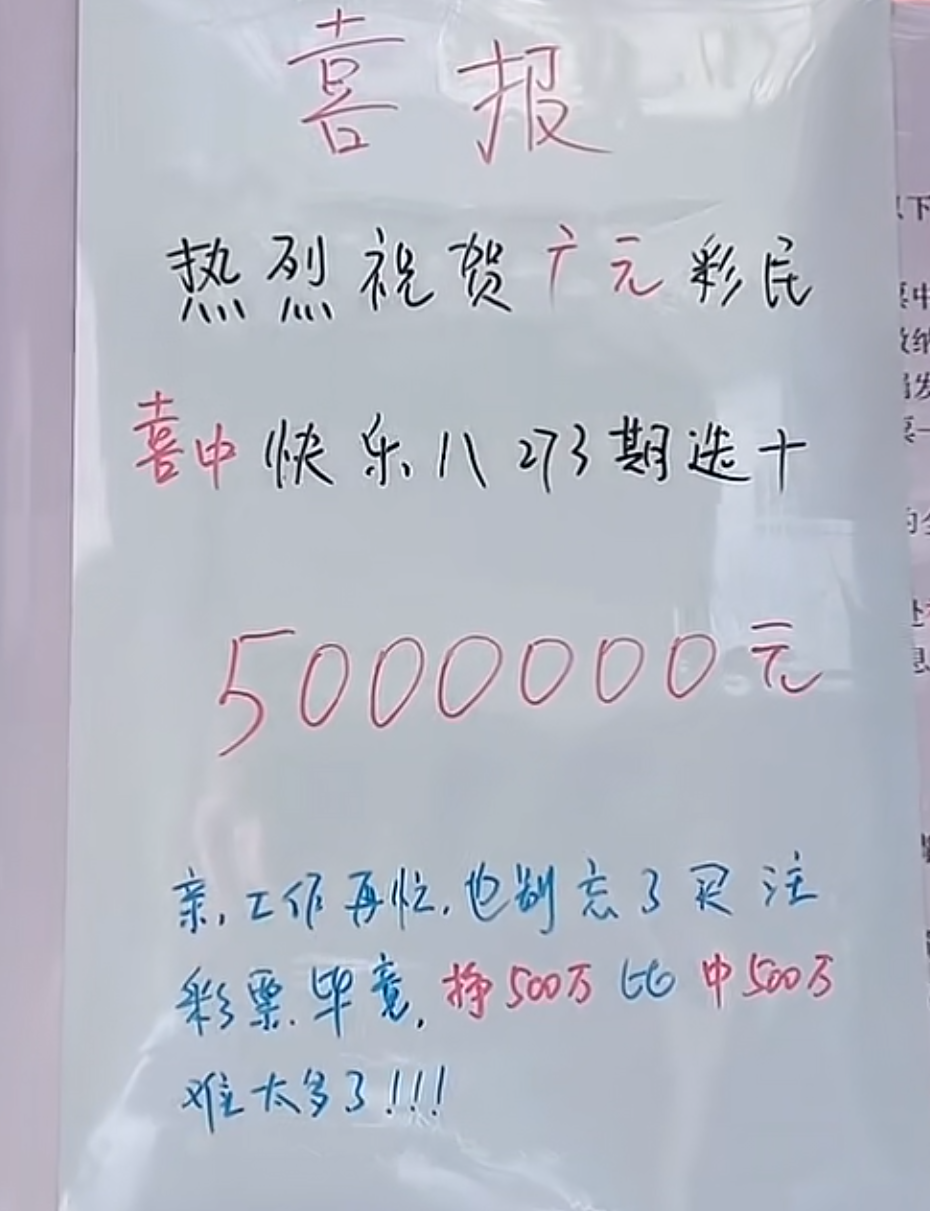 喜报
热烈祝贺广元彩民
喜中快乐八273期选十
5000000元
亲,工作再忙,也别忘了买注
彩票.毕竟,挣500万比中500万
难太多了!!!
以下
票中
缴纳
票一
的全